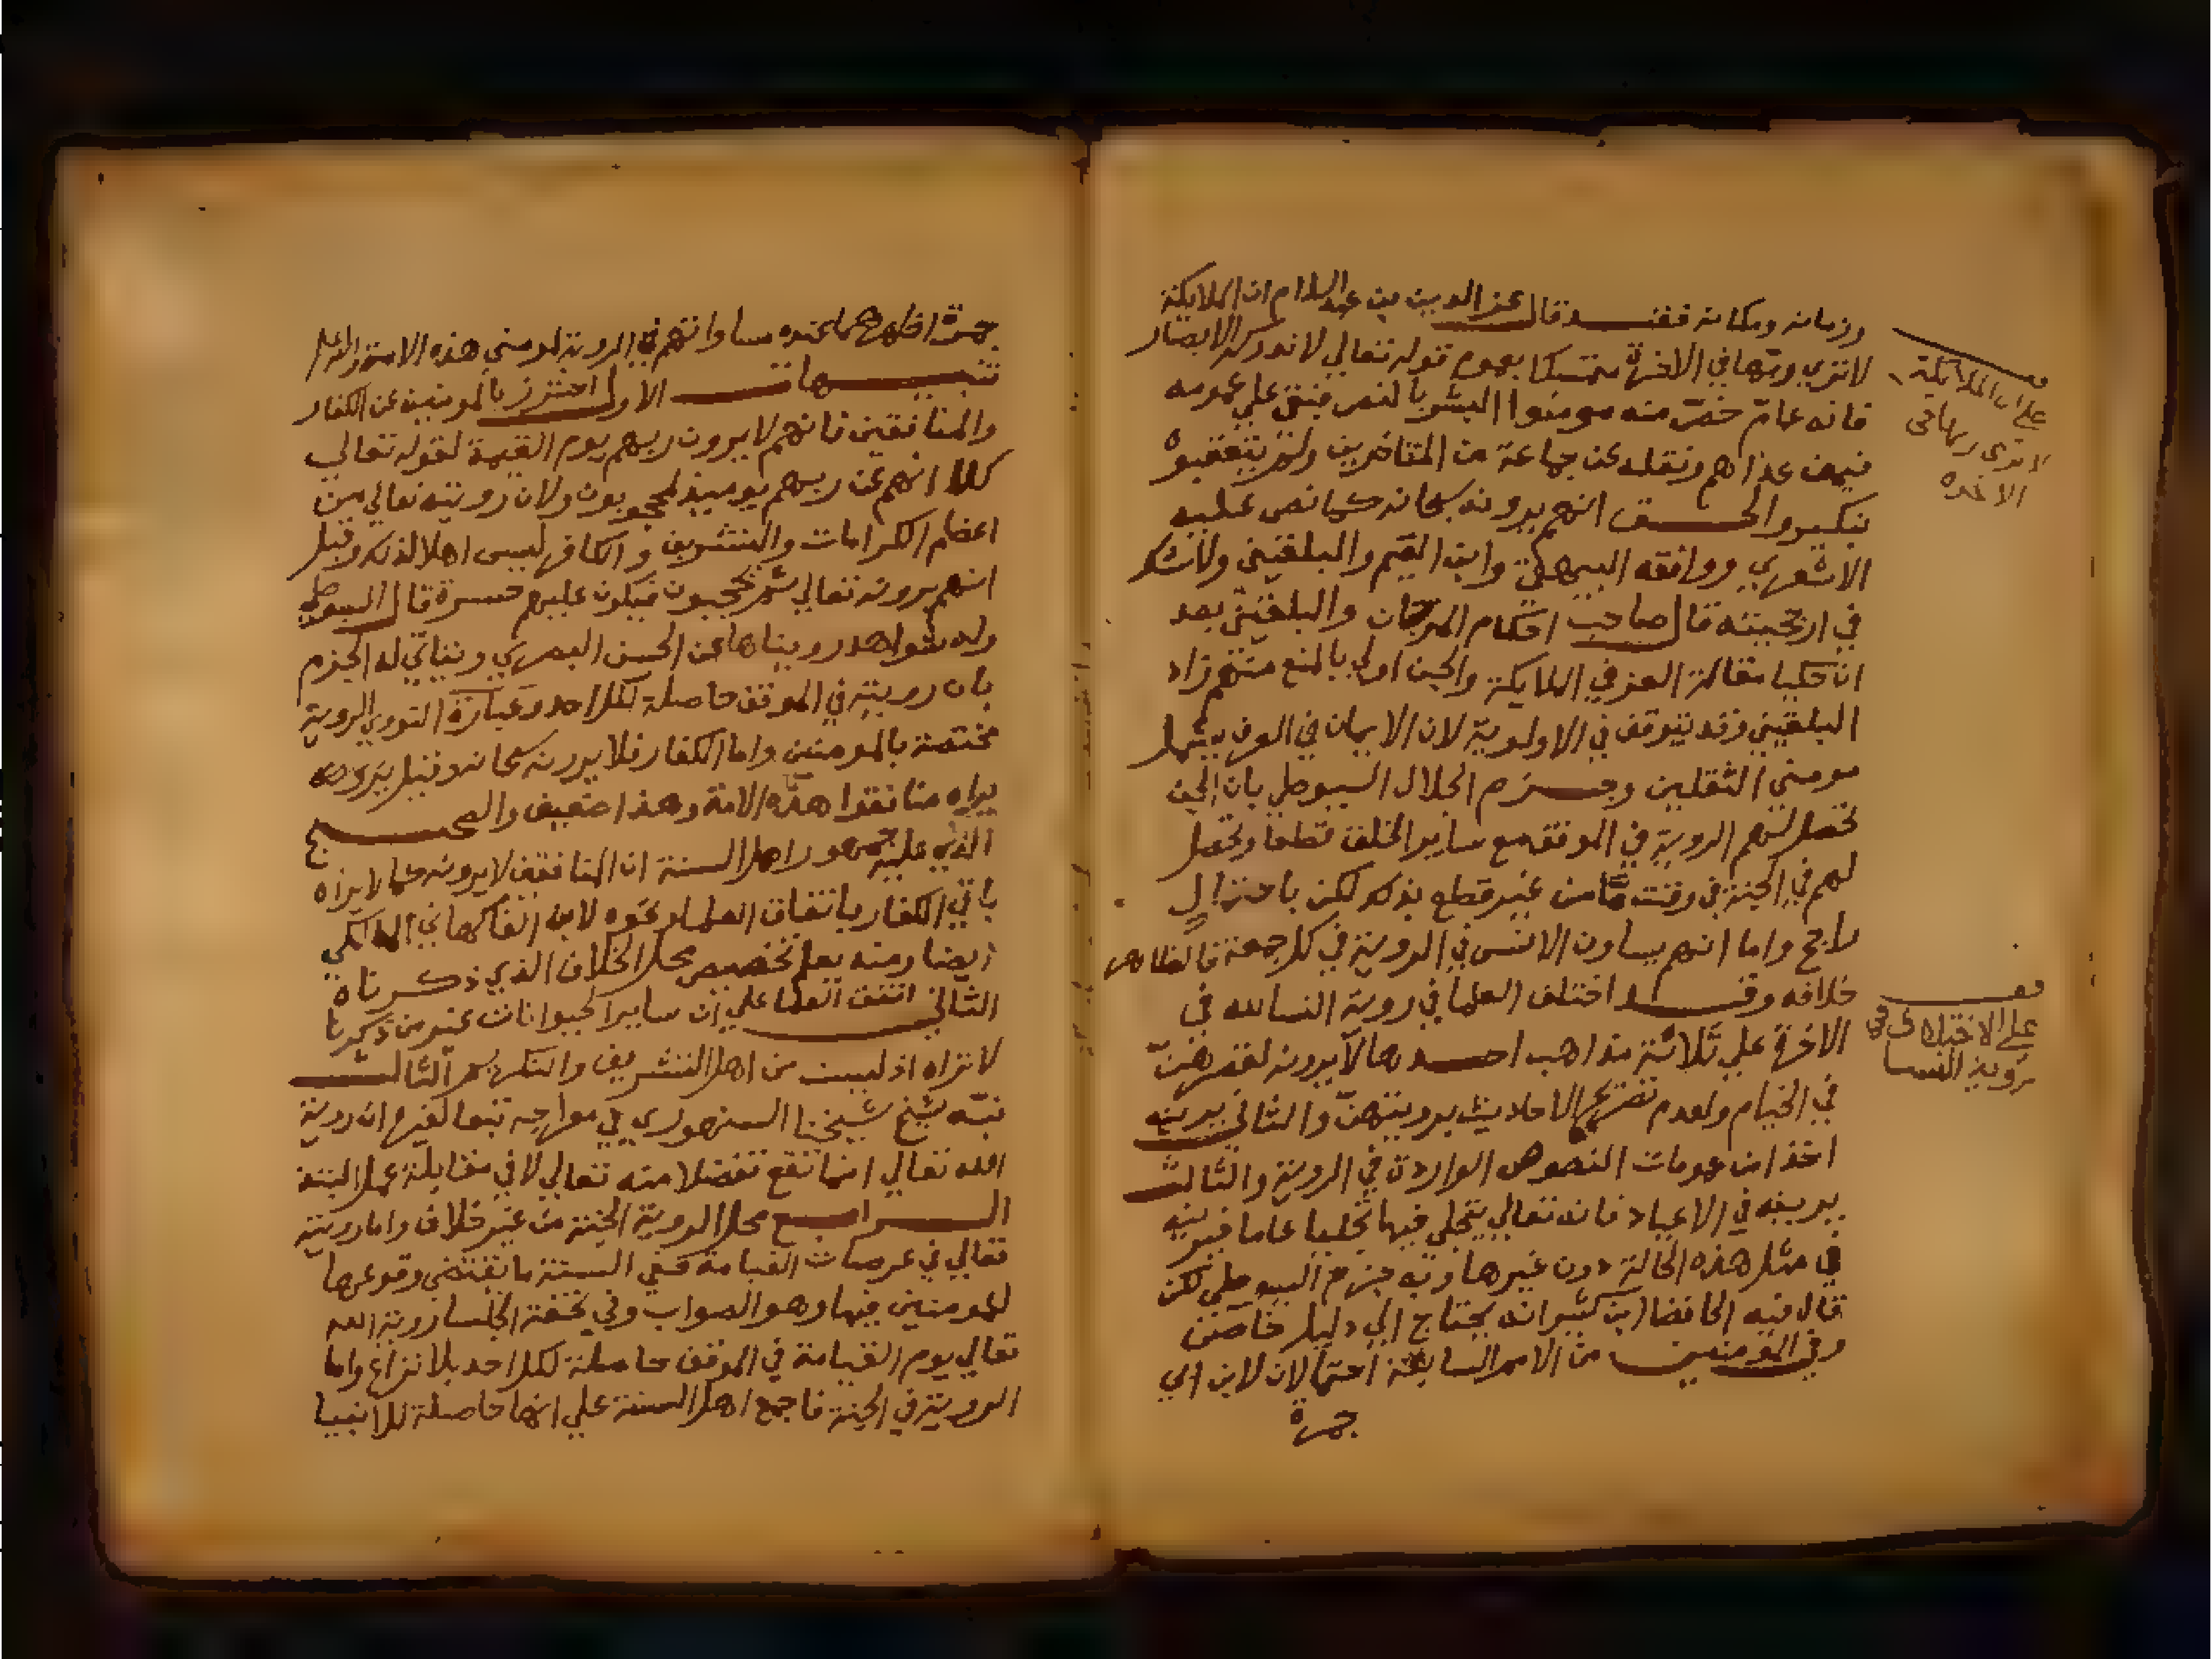 وزمانه ومكانه فقد قال عز الدين بن عبد السلام ان الملايكة
لا تري ربها في الاخرة متمسكا بعموم قوله تعالي لا تدركه الابصار
فانه عام خص منه مومنوا البشر بالنص فبقي علي عمومه
فيمن عداهم ونقله عن جماعة من المتاخرين ولم يتعقبوه
بنكير والحق انهم يرونه سبحانه كما نص عليه
الاشعري ووافقه البيهقي وابن القيم والبلقيني ولا شك
في ارجحيته قال صاحب احكام المرجان والبلقيني بعد
ان حكيا مقالة العز في الملايكة والجن اولي بالمنع منهم زاد
البلقيني وقد يتوقف في الاولوية لان الايمان في العرف يشمل
مومني الثقلين وجزم الجلال السيوطي بان الجن
تحصل لهم الروية في الموقف مع ساير الخلق قطعا وتحصل
لهم في الجنة في وقت ما من غير قطع بذلك لكن باحتمال
راجح واما انهم يساوون الانس في الروية في كل جمعة فالظاهر
خلافه وقد اختلف العلما في روية النسا لله في
الاخرة علي ثلاثة مذاهب احدها لا يرونه لقصرهن
في الخيام ولعدم تصريح الاحاديث برويتهن والثاني يرينه
اخذا من عمومات النصوص الواردة في الروية والثالث
يرينه في الاعياد فانه تعالي يتجلي فيها تجليا عاما فيرينه
في مثل هذه الحالة دون غيرها وبه جزم السيوطي لكن
قال فيه الحافظ ابن كثير انه يحتاج الي دليل خاص
وفي المومنين من الامم السابقة احتمالان لابن ابي
جمرة
على ان الملايكة
لا ترى ربها في
الاخرة
على الاختلاف في
روية النسا
جمرة اظهرهما عنده مساواتهم في الروية لمومني هذه الامة والله اعلم
تنبيهات الاول احترز بالمومنين عن الكفار
والمنافقين فانهم لا يرون ربهم يوم القيمة لقوله تعالي
كلا انهم عن ربهم يوميذ لمحجوبون ولان رويته تعالي من
اعظم الكرامات والتشريف والكافر ليس اهلا لذلك وقيل
انهم يرونه تعالي ثم يحجبون فيكون عليهم حسرة قال السيوطي
وله شواهد رويناها عن الحسن البصري وينافي له الجزم
بان رويته في الموقف حاصلة لكل احد وعبارة النووي الروية
مختصة بالمومنين واما الكفار فلا يرونه سبحانه وقيل
يراه منافقوا هذه الامة وهذا ضعيف والصحيح
الذي عليه جمهور اهل السنة ان المنافقين لا يرونه كما لا يراه
باقي الكفار باتفاق العلما ونحوه لابن الفاكهاني المالكي
ايضا ومنه يعلم تخصيص محل الخلاف الذي ذكرناه
الثاني اتفق العلما علي ان ساير الحيوانات غير من ذكرنا
لا تراه اذ ليست من اهل التشريف والتكريم الثالث
نبه شيخ شيخنا السنهوري في تبعا لغيره ان روية
الله تعالي انما تقع تفضلا منه تعالي لا في مقابلة عمل البتة
الرابع محل الروية الجنة من غير خلاف واما رويته
تعالي في عرصات القيامة ففي السنة ما يقتضي وقوعها
للمومنين فيها وهو الصواب وفي تحفة الجلسا روية الله
تعالي يوم القيامة في الموقف حاصلة لكل احد بلا نزاع واما
الروية في الجنة فاجمع اهل السنة علي انها حاصلة للانبيا